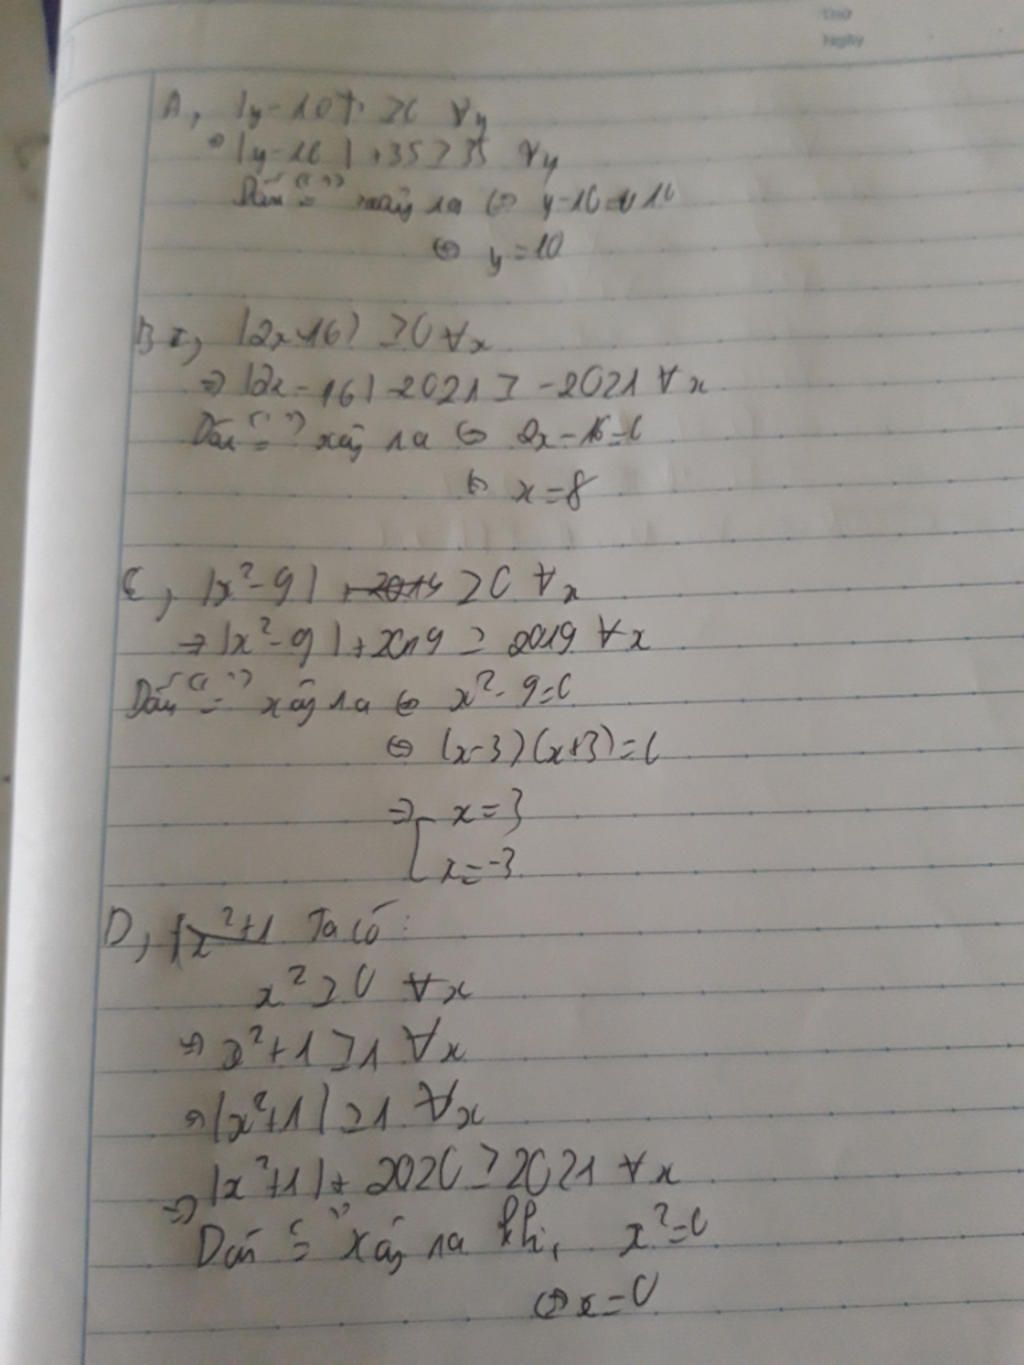 Thứ
Ngày
A, |y-10| ≥0 ∀y
⇒ |y-10| +35≥35 ∀y
Dấu "=" xảy ra ⇔ y-10=
⇔ y=10
B, |2x-16| ≥0 ∀x
⇒ |2x-16|-2021 ≥ -2021 ∀x
Dấu "=" xảy ra ⇔ 2x-16=0
⇔ x=8
C, |x²-9| ≥0 ∀x
⇒ |x²-9|+2019 ≥ 2019 ∀x
Dấu "=" xảy ra ⇔ x²-9=0
⇔ (x-3)(x+3)=0
⇒ [ x=3
x=-3
D, Ta có:
x²≥0 ∀x
⇒ x²+1≥1 ∀x
⇒ |x²+1|≥1 ∀x
⇒ |x²+1|+2020≥2021 ∀x
Dấu "=" xảy ra khi, x²=0
⇔ x=0